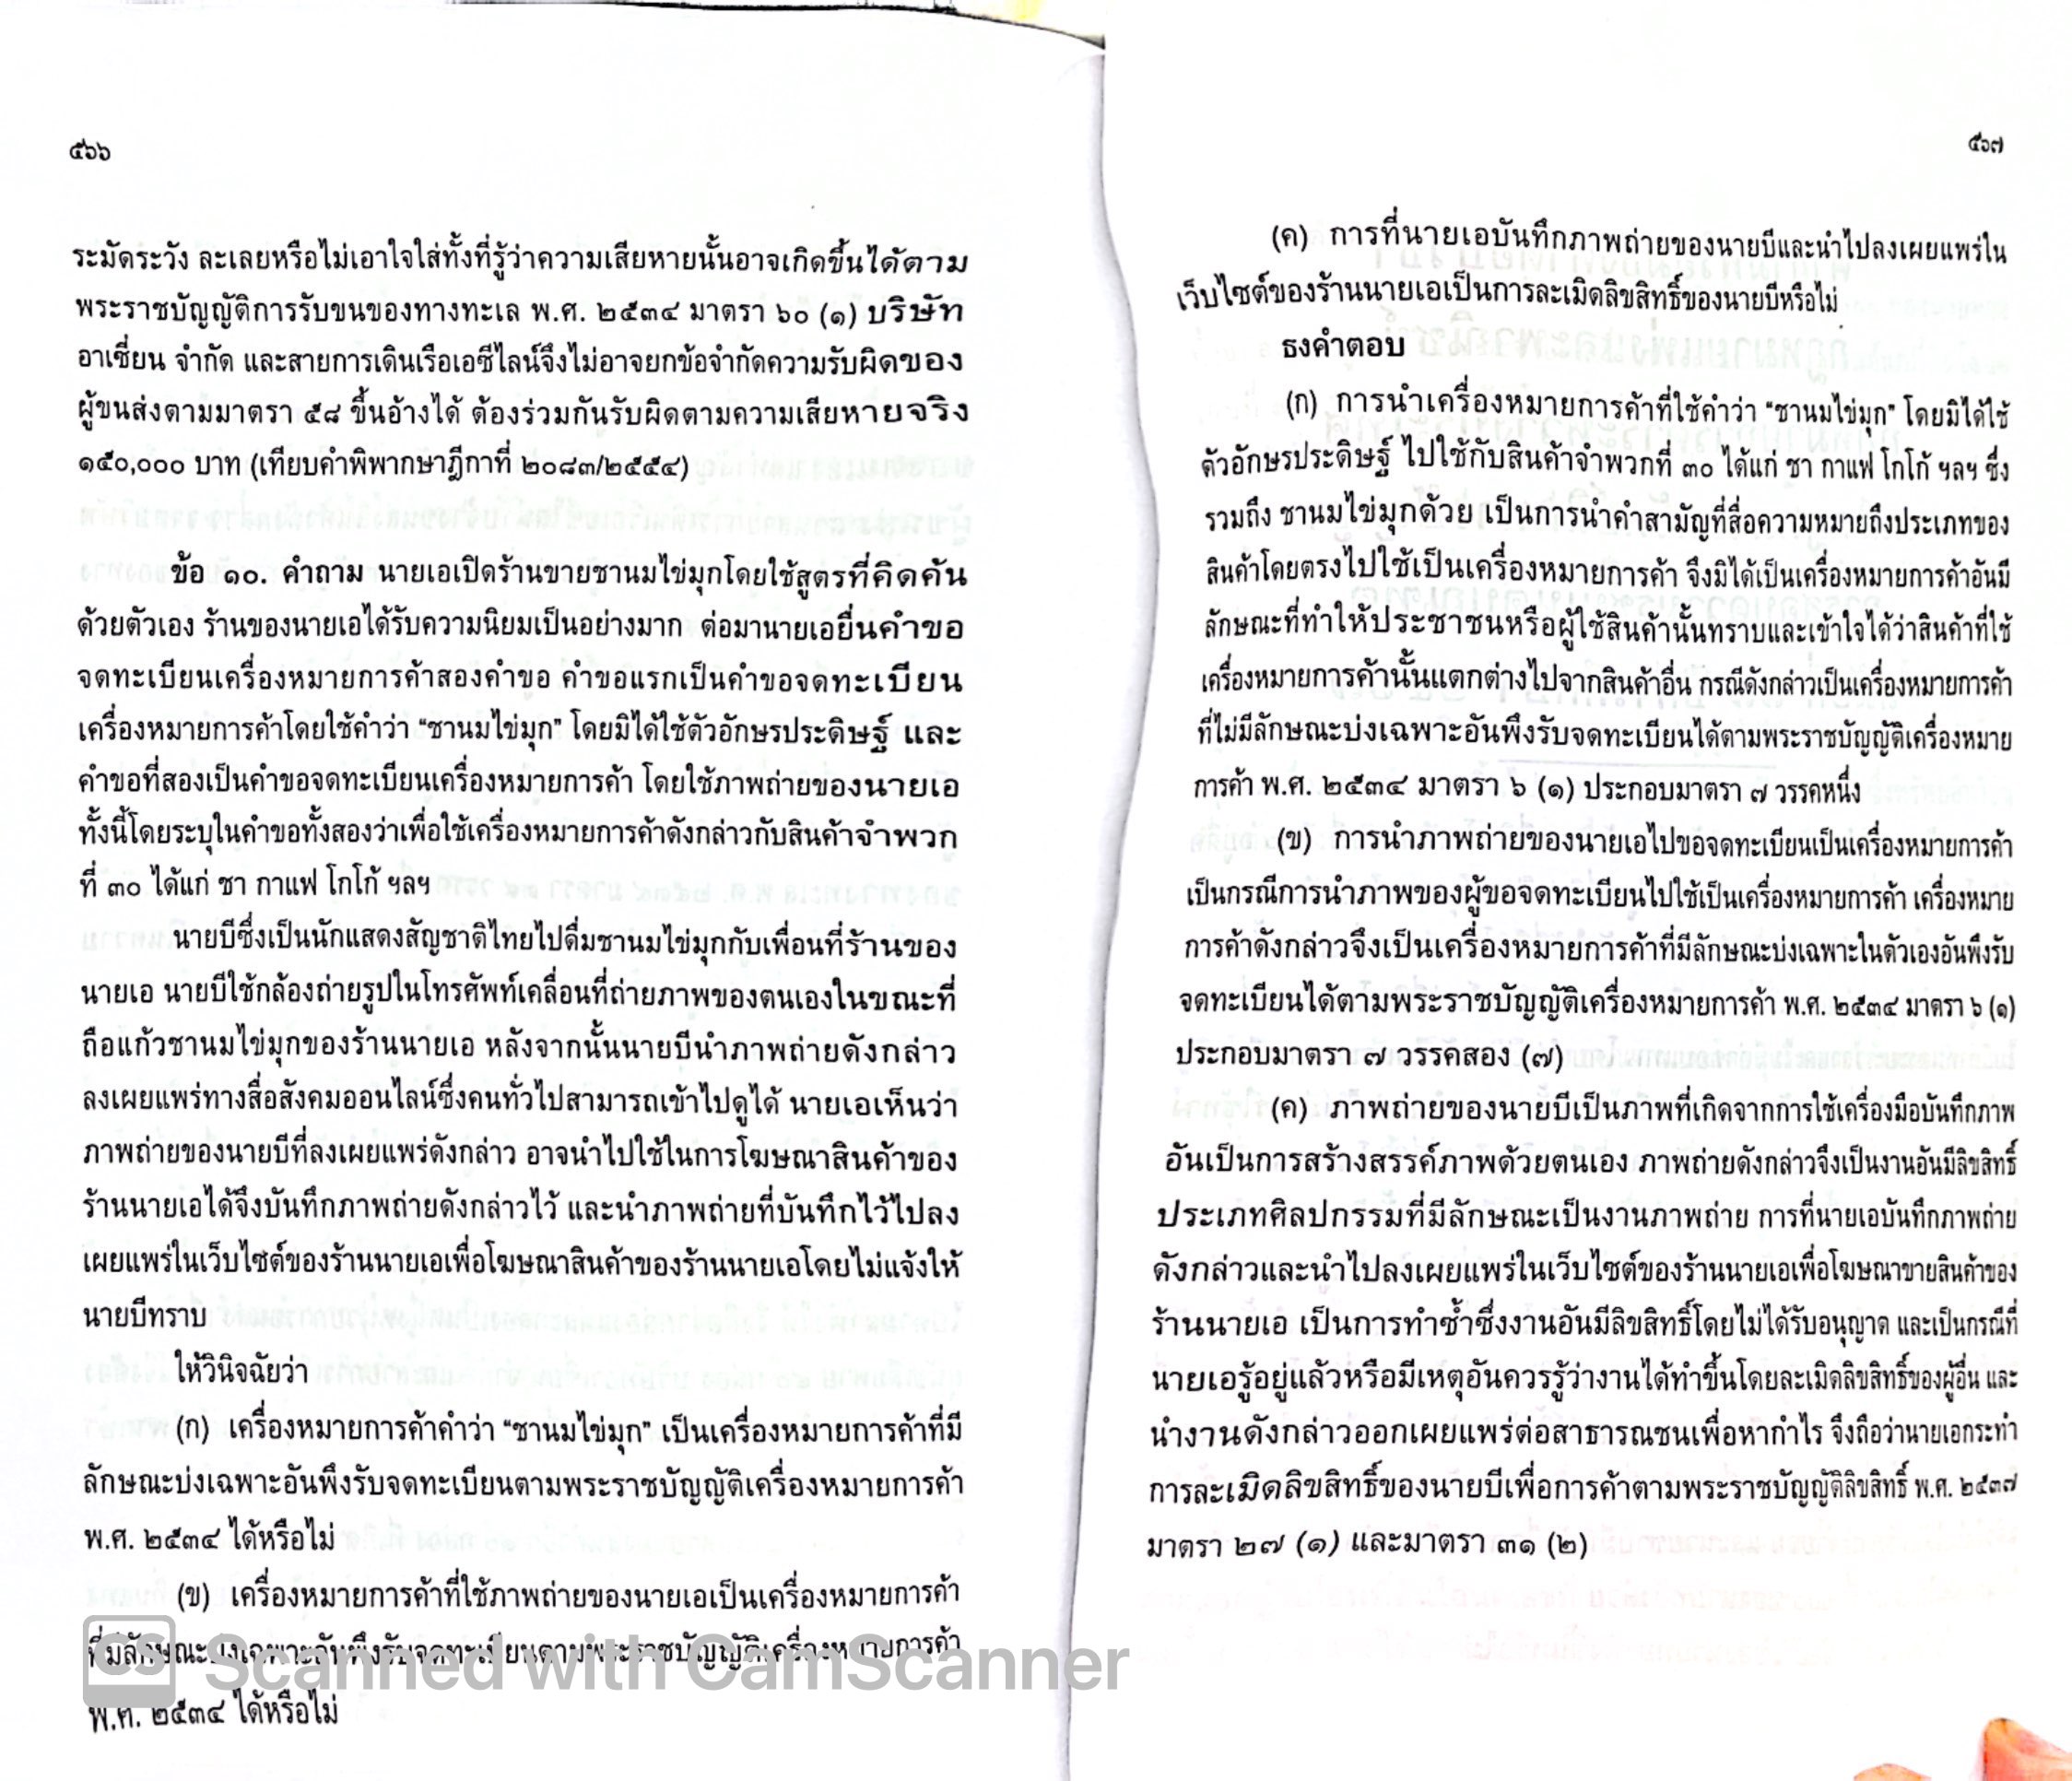 ๕๖๖
ระมัดระวัง ละเลยหรือไม่เอาใจใส่ทั้งที่รู้ว่าความเสียหายนั้นอาจเกิดขึ้นได้ตาม
พระราชบัญญัติการรับขนของทางทะเล พ.ศ. ๒๕๓๔ มาตรา ๖๐ (๑) บริษัท
อาเซี่ยน จำกัด และสายการเดินเรือเอซีไลน์จึงไม่อาจยกข้อจำกัดความรับผิดของ
ผู้ขนส่งตามมาตรา ๕๘ ขึ้นอ้างได้ ต้องร่วมกันรับผิดตามความเสียหายจริง
๑๕๐,๐๐๐ บาท (เทียบคำพิพากษาฎีกาที่ ๒๐๘๓/๒๕๕๔)
ข้อ ๑๐. คำถาม นายเอเปิดร้านขายชานมไข่มุกโดยใช้สูตรที่คิดค้น
ด้วยตัวเอง ร้านของนายเอได้รับความนิยมเป็นอย่างมาก ต่อมานายเอยื่นคำขอ
จดทะเบียนเครื่องหมายการค้าสองคำขอ คำขอแรกเป็นคำขอจดทะเบียน
เครื่องหมายการค้าโดยใช้คำว่า “ชานมไข่มุก” โดยมิได้ใช้ตัวอักษรประดิษฐ์ และ
คำขอที่สองเป็นคำขอจดทะเบียนเครื่องหมายการค้า โดยใช้ภาพถ่ายของนายเอ
ทั้งนี้โดยระบุในคำขอทั้งสองว่าเพื่อใช้เครื่องหมายการค้าดังกล่าวกับสินค้าจำพวก
ที่ ๓๐ ได้แก่ ชา กาแฟ โกโก้ ฯลฯ
นายบีซึ่งเป็นนักแสดงสัญชาติไทยไปดื่มชานมไข่มุกกับเพื่อนที่ร้านของ
นายเอ นายบีใช้กล้องถ่ายรูปในโทรศัพท์เคลื่อนที่ถ่ายภาพของตนเองในขณะที่
ถือแก้วชานมไข่มุกของร้านนายเอ หลังจากนั้นนายบีนำภาพถ่ายดังกล่าว
ลงเผยแพร่ทางสื่อสังคมออนไลน์ซึ่งคนทั่วไปสามารถเข้าไปดูได้ นายเอเห็นว่า
ภาพถ่ายของนายบีที่ลงเผยแพร่ดังกล่าว อาจนำไปใช้ในการโฆษณาสินค้าของ
ร้านนายเอได้จึงบันทึกภาพถ่ายดังกล่าวไว้ และนำภาพถ่ายที่บันทึกไว้ไปลง
เผยแพร่ในเว็บไซต์ของร้านนายเอเพื่อโฆษณาสินค้าของร้านนายเอโดยไม่แจ้งให้
นายบีทราบ
ให้วินิจฉัยว่า
(ก) เครื่องหมายการค้าคำว่า “ชานมไข่มุก” เป็นเครื่องหมายการค้าที่มี
ลักษณะบ่งเฉพาะอันพึงรับจดทะเบียนตามพระราชบัญญัติเครื่องหมายการค้า
พ.ศ. ๒๕๓๔ ได้หรือไม่
(ข) เครื่องหมายการค้าที่ใช้ภาพถ่ายของนายเอเป็นเครื่องหมายการค้า
ที่มีลักษณะบ่งเฉพาะอันพึงรับจดทะเบียนตามพระราชบัญญัติเครื่องหมายการค้า
พ.ศ. ๒๕๓๔ ได้หรือไม่
CS Scanned with CamScanner
๕๖๗
(ค) การที่นายเอบันทึกภาพถ่ายของนายบีและนำไปลงเผยแพร่ใน
เว็บไซต์ของร้านนายเอเป็นการละเมิดลิขสิทธิ์ของนายบีหรือไม่
ธงคำตอบ
(ก) การนำเครื่องหมายการค้าที่ใช้คำว่า “ชานมไข่มุก” โดยมิได้ใช้
ตัวอักษรประดิษฐ์ ไปใช้กับสินค้าจำพวกที่ ๓๐ ได้แก่ ชา กาแฟ โกโก้ ฯลฯ ซึ่ง
รวมถึง ชานมไข่มุกด้วย เป็นการนำคำสามัญที่สื่อความหมายถึงประเภทของ
สินค้าโดยตรงไปใช้เป็นเครื่องหมายการค้า จึงมิได้เป็นเครื่องหมายการค้าอันมี
ลักษณะที่ทำให้ประชาชนหรือผู้ใช้สินค้านั้นทราบและเข้าใจได้ว่าสินค้าที่ใช้
เครื่องหมายการค้านั้นแตกต่างไปจากสินค้าอื่น กรณีดังกล่าวเป็นเครื่องหมายการค้า
ที่ไม่มีลักษณะบ่งเฉพาะอันพึงรับจดทะเบียนได้ตามพระราชบัญญัติเครื่องหมาย
การค้า พ.ศ. ๒๕๓๔ มาตรา ๖ (๑) ประกอบมาตรา ๗ วรรคหนึ่ง
(ข) การนำภาพถ่ายของนายเอไปขอจดทะเบียนเป็นเครื่องหมายการค้า
เป็นกรณีการนำภาพของผู้ขอจดทะเบียนไปใช้เป็นเครื่องหมายการค้า เครื่องหมาย
การค้าดังกล่าวจึงเป็นเครื่องหมายการค้าที่มีลักษณะบ่งเฉพาะในตัวเองอันพึงรับ
จดทะเบียนได้ตามพระราชบัญญัติเครื่องหมายการค้า พ.ศ. ๒๕๓๔ มาตรา ๖ (๑)
ประกอบมาตรา ๗ วรรคสอง (๗)
(ค) ภาพถ่ายของนายบีเป็นภาพที่เกิดจากการใช้เครื่องมือบันทึกภาพ
อันเป็นการสร้างสรรค์ภาพด้วยตนเอง ภาพถ่ายดังกล่าวจึงเป็นงานอันมีลิขสิทธิ์
ประเภทศิลปกรรมที่มีลักษณะเป็นงานภาพถ่าย การที่นายเอบันทึกภาพถ่าย
ดังกล่าวและนำไปลงเผยแพร่ในเว็บไซต์ของร้านนายเอเพื่อโฆษณาขายสินค้าของ
ร้านนายเอ เป็นการทำซ้ำซึ่งงานอันมีลิขสิทธิ์โดยไม่ได้รับอนุญาต และเป็นกรณีที่
นายเอรู้อยู่แล้วหรือมีเหตุอันควรรู้ว่างานได้ทำขึ้นโดยละเมิดลิขสิทธิ์ของผู้อื่น และ
นำงานดังกล่าวออกเผยแพร่ต่อสาธารณชนเพื่อหากำไร จึงถือว่านายเอกระทำ
การละเมิดลิขสิทธิ์ของนายบีเพื่อการค้าตามพระราชบัญญัติลิขสิทธิ์ พ.ศ. ๒๕๓๗
มาตรา ๒๗ (๑) และมาตรา ๓๑ (๒)